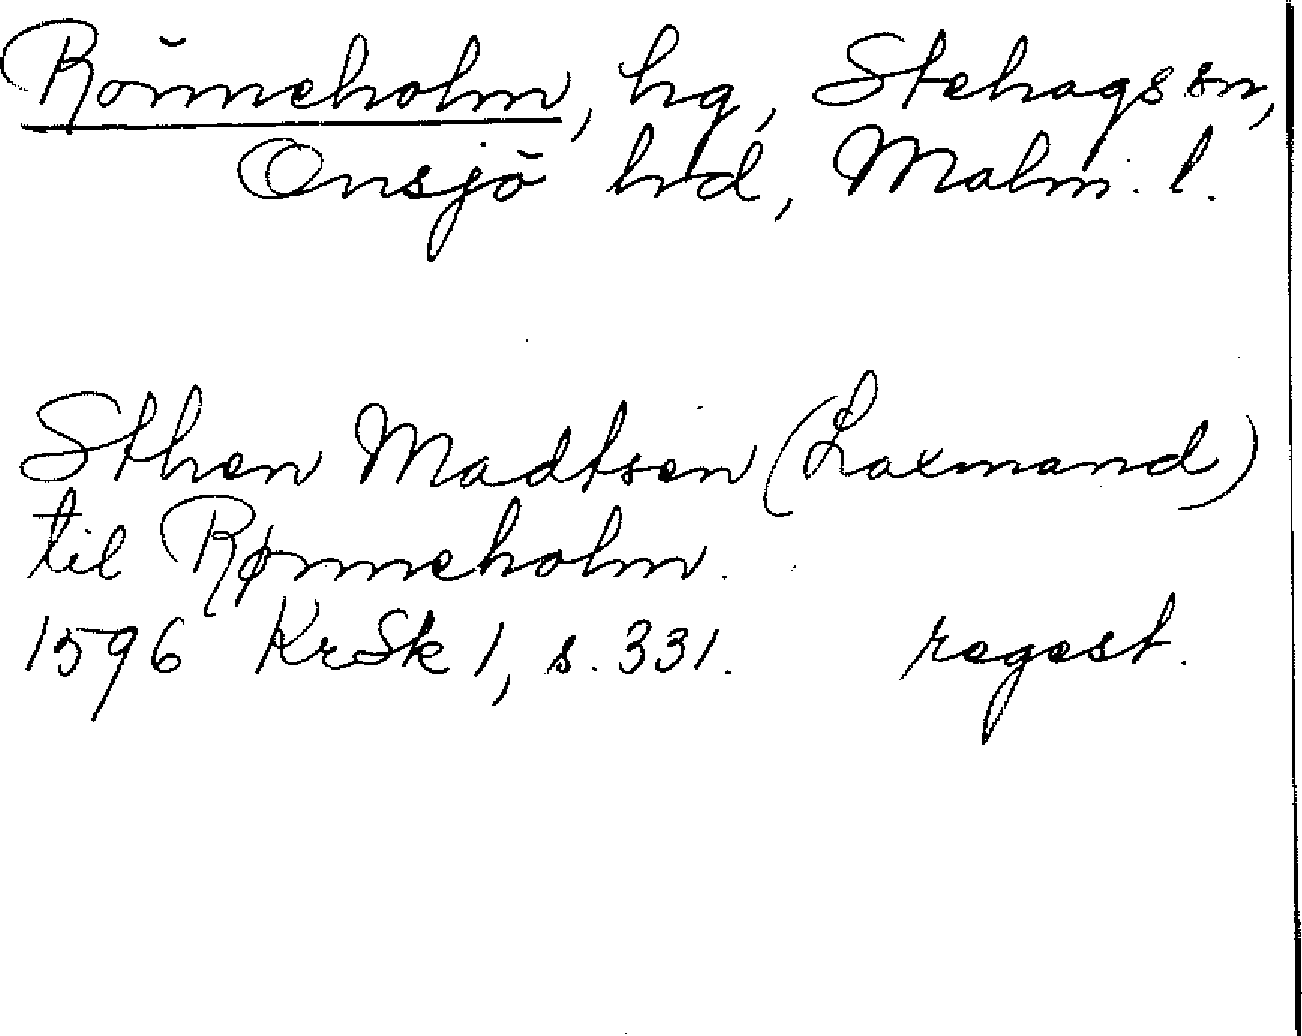 Rönneholm, hg, Stehags sn,
Onsjö hd, Malm. l.
Sthen Madtsen (Laxmand)
til Rønneholm.
1596 KrSk 1, s. 331. regest.